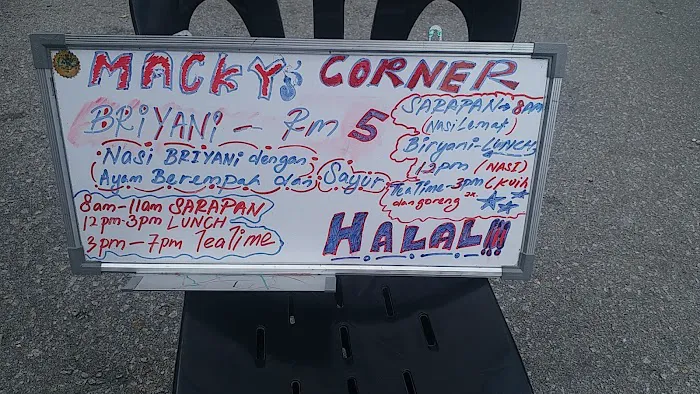 MACKY'S CORNER
BRIYANI - Rm 5
Nasi BRIYANI dengan
Ayam Berempah dan Sayur
8am-11am SARAPAN
12pm-3pm LUNCH
3pm-7pm TeaTime
SARAPAN→8am
(Nasi Lemak)
Biryani-LUNCH
12pm (NASI)
TeaTime-3pm (Kuih
dan goreng 2x
HALAL!!!